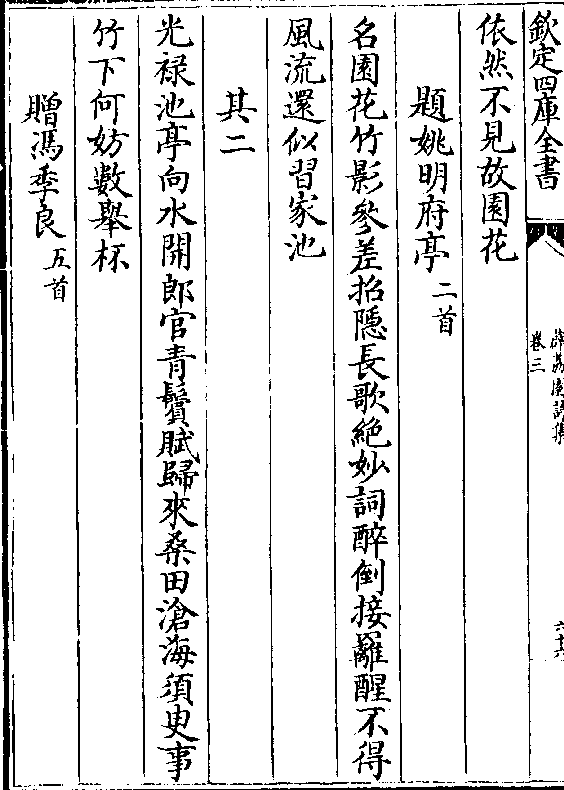 欽定四庫全書
卷三
依然不見故園花
題姚明府亭二首
名園花竹影參差招隱長歌絶妙詞醉倒接䍦醒不得
風流還似習家池
其二
光禄池亭向水開郎官青鬢賦歸來桑田滄海須臾事
竹下何妨數舉杯
贈馮季良五首